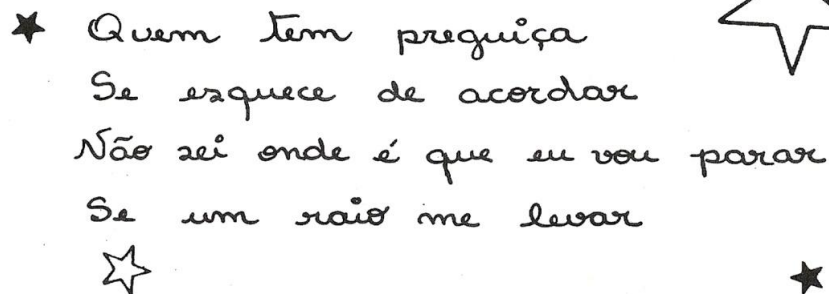 Quem tem preguiça
Se esquece de acordar
Não sei onde é que eu vou parar
Se um raio me levar